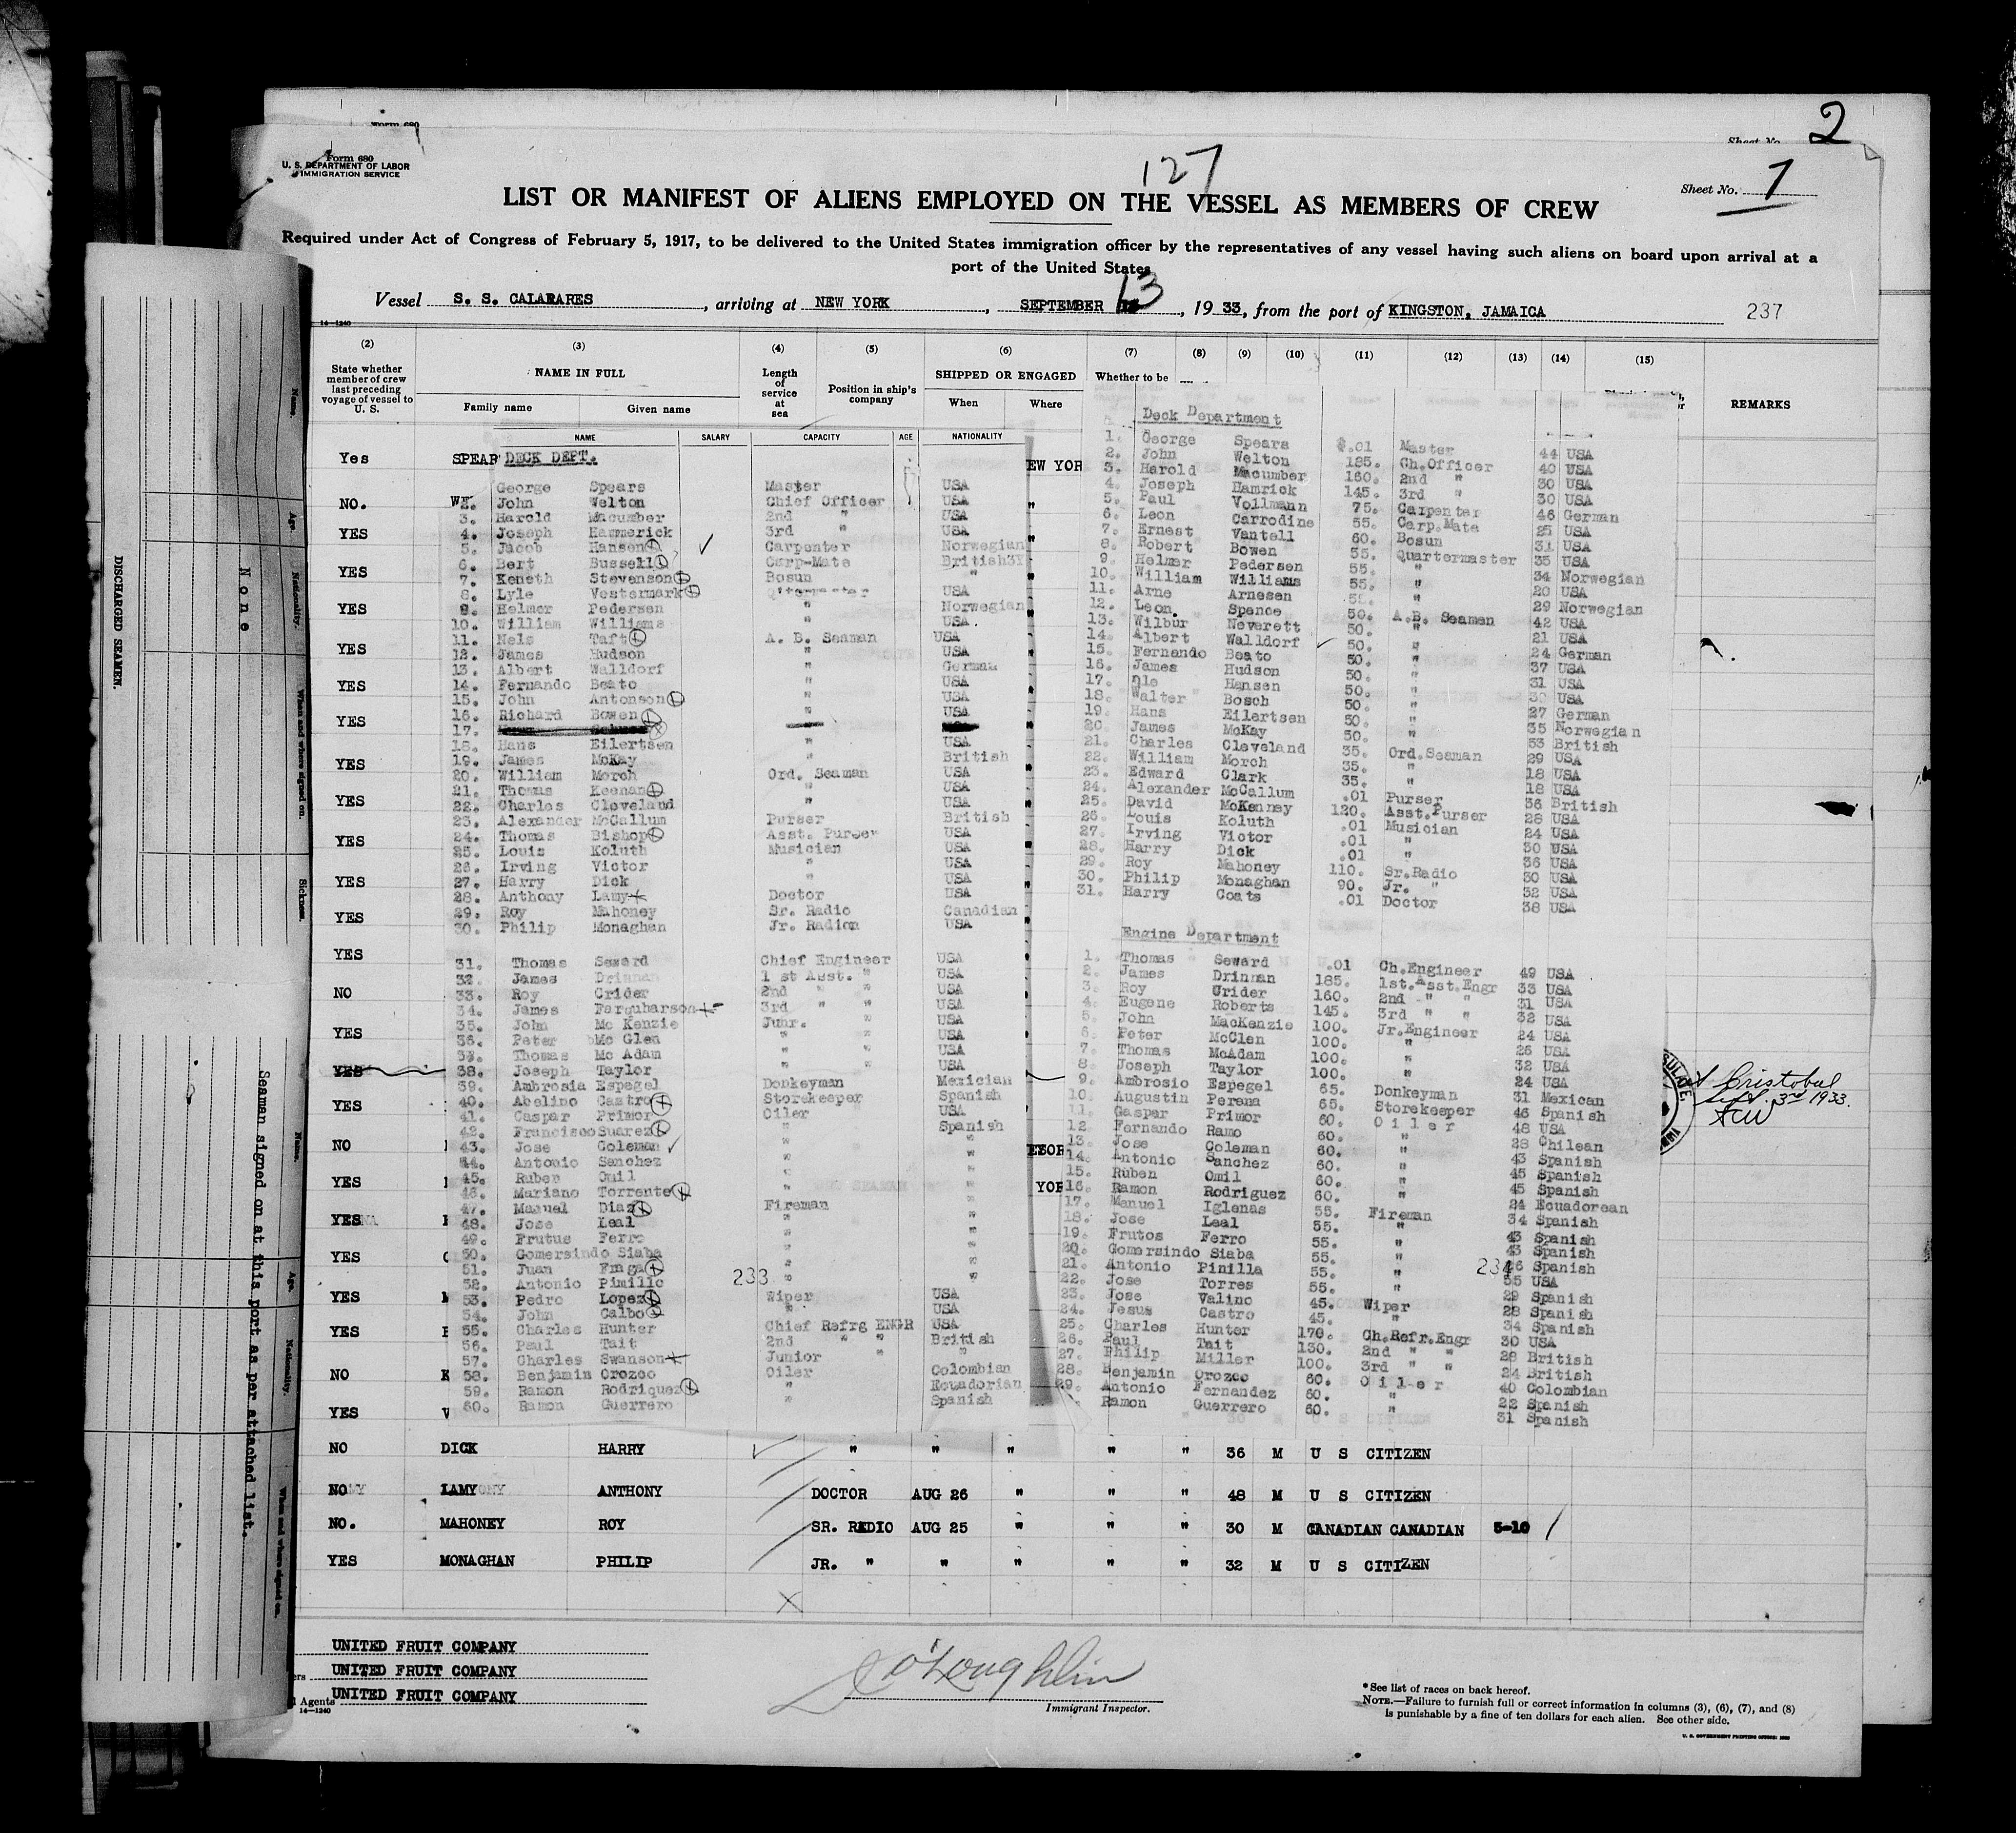 2
Form 680
Sheet No.
Form 680
U. S. DEPARTMENT OF LABOR
IMMIGRATION SERVICE
127
Sheet No. 1
LIST OR MANIFEST OF ALIENS EMPLOYED ON THE VESSEL AS MEMBERS OF CREW
Required under Act of Congress of February 5, 1917, to be delivered to the United States immigration officer by the representatives of any vessel having such aliens on board upon arrival at a
port of the United States
Vessel S. S. CALAMARES, arriving at NEW YORK, SEPTEMBER 13, 1933, from the port of KINGSTON, JAMAICA 237
14—1240
(2) (3) (4) (5) (6) (7) (8) (9) (10) (11) (12) (13) (14) (15)
State whether member of crew last preceding voyage of vessel to U. S.
NAME IN FULL
Family name Given name
Length of service at sea
Position in ship's company
SHIPPED OR ENGAGED
When Where
Whether to be
REMARKS
NAME SALARY CAPACITY AGE NATIONALITY
Yes SPEAR DECK DEPT.
George Spears Master USA
NO. John Welton Chief Officer USA
3. Harold Macumber 2nd " USA
YES 4. Joseph Hammerick 3rd " USA
5. Jacob Hansen Carpenter Norwegian
6. Bert Bussell Carp-Mate British
YES 7. Keneth Stevenson Bosun "
8. Lyle Vestermark USA
YES 9. Helmer Pedersen " Norwegian
10. William Williams " USA
11. Nels Taft A. B. Seaman USA
YES 12. James Hudson " USA
13. Albert Walldorf " German
YES 14. Fernando Beato " USA
15. John Antonson " USA
16. Richard Bowen " USA
YES 17.
18. Hans Eilertsen " USA
YES 19. James McKay " British
20. William Morch Ord. Seaman USA
21. Thomas Keenan " USA
YES 22. Charles Cleveland " USA
23. Alexander McCallum Purser British
YES 24. Thomas Bishop Asst. Purser USA
25. Louis Koluth Musician USA
26. Irving Victor " USA
YES 27. Harry Dick " USA
28. Anthony Lamy Doctor USA
YES 29. Roy Mahoney Sr. Radio Canadian
30. Philip Monaghan Jr. Radion USA
YES
31. Thomas Seward Chief Engineer USA
32. James Drinnan 1 st Asst. " USA
NO 33. Roy Crider 2nd " " USA
34. James Farquharson 3rd " " USA
YES 35. John Mc Kenzie Junr. " USA
36. Peter Mc Glen " " USA
37. Thomas Mc Adam " " USA
YES 38. Joseph Taylor " " USA
39. Ambrosia Espegel Donkeyman Mexician
YES 40. Abelino Castro Storekeeper Spanish
41. Caspar Primor Oiler USA
42. Francisco Suarez " Spanish
NO 43. Jose Coleman " "
44. Antonio Sanchez " "
YES 45. Ruben Omil " "
46. Mariano Torrente " "
47. Manuel Diaz Fireman "
YES 48. Jose Leal " "
49. Frutus Ferro " "
YES 50. Gomersindo Siaba " "
51. Juan Fraga " "
52. Antonio Pimillo " "
233
YES 53. Pedro Lopez Wiper USA
54. John Calbo " USA
YES 55. Charles Hunter Chief Refrg ENGR USA
56. Paul Tait 2nd " " British
57. Charles Swanson Junior " "
NO 58. Benjamin Orozco Oiler Colombian
59. Ramon Rodriquez " Ecuadorian
YES 60. Ramon Guerrero " Spanish
Deck Department
1. George Spears $.01 Master 44 USA
2. John Welton 185. Ch.Officer 40 USA
3. Harold Macumber 160. 2nd " 30 USA
4. Joseph Hamrick 145. 3rd " 30 USA
5. Paul Vollmann 75. Carpenter 46 German
6. Leon Carrodine 55. Carp.Mate 25 USA
7. Ernest Vantell 60. Bosun 31 USA
8. Robert Bowen 55. Quartermaster 35 USA
9. Helmer Pedersen 55. " 34 Norwegian
10. William Williams 55. " 20 USA
11. Arne Arnesen 55. " 29 Norwegian
12. Leon. Spence 50. A.B. Seamen 42 USA
13. Wilbur Neverett 50. " 21 USA
14. Albert Walldorf 50. " 24 German
15. Fernando Beato 50. " 37 USA
16. James Hudson 50. " 31 USA
17. Ole Hansen 50. " 30 USA
18. Walter Bosch 50. " 27 German
19. Hans Eilertsen 50. " 35 Norwegian
20. James McKay 50. " 53 British
21. Charles Cleveland 35. Ord.Seaman 29 USA
22. William Morch 35. " 18 USA
23. Edward Clark 35. " 18 USA
24. Alexander McCallum .01 Purser 36 British
25. David McKenney 120. Asst.Purser 28 USA
26. Louis Koluth .01 Musician 24 USA
27. Irving Victor .01 " 30 USA
28. Harry Dick .01 " 36 USA
29. Roy Mahoney 110. Sr.Radio 30 USA
30. Philip Monaghan 90. Jr. " 32 USA
31. Harry Coats .01 Doctor 38 USA
Engine Department
1. Thomas Seward .01 Ch.Engineer 49 USA
2. James Drinnan 185. 1st.Asst.Engr 33 USA
3. Roy Crider 160. 2nd " " 31 USA
4. Eugene Roberts 145. 3rd " " 32 USA
5. John MacKenzie 100. Jr.Engineer 24 USA
6. Peter McClen 100. " 26 USA
7. Thomas McAdam 100. " 32 USA
8. Joseph Taylor 100. " 24 USA
9. Ambrosio Espegel 65. Donkeyman 31 Mexican
10. Augustin Perena 65. Storekeeper 46 Spanish
11. Gaspar Primor 60. Oiler 48 USA
12. Fernando Ramo 60. " 28 Chilean
13. Jose Coleman 60. " 43 Spanish
14. Antonio Sanchez 60. " 45 Spanish
15. Ruben Omil 60. " 45 Spanish
16. Ramon Rodriguez 60. " 24 Ecuadorean
17. Manuel Iglenas 55. Fireman 34 Spanish
18. Jose Leal 55. " 43 Spanish
19. Frutos Ferro 55. " 43 Spanish
20. Gomersindo Siaba 55. " 36 Spanish
21. Antonio Pinilla 55. " 35 USA
234
22. Jose Torres 55. " 29 Spanish
23. Jose Valino 45. Wiper 28 Spanish
24. Jesus Castro 45. " 34 Spanish
25. Charles Hunter 170. Ch.Refr.Engr 30 USA
26. Paul Tait 130. 2nd " " 28 British
27. Philip Miller 100. 3rd " " 24 British
28. Benjamin Orozco 60. Oiler 40 Colombian
29. Antonio Fernandez 60. " 22 Spanish
Ramon Guerrero 60. " 31 Spanish
At Cristobal
Sept. 3rd 1933.
NO DICK HARRY " " " " " 36 M U S CITIZEN
NO LAMY ANTHONY DOCTOR AUG 26 " " " 48 M U S CITIZEN
NO. MAHONEY ROY SR. REDIO AUG 25 " " " 30 M CANADIAN CANADIAN 5-10
YES MONAGHAN PHILIP JR. " " " " " 32 M U S CITIZEN
UNITED FRUIT COMPANY
UNITED FRUIT COMPANY
Agents UNITED FRUIT COMPANY
14—1240
O'Loughlin
Immigrant Inspector.
*See list of races on back hereof.
NOTE.—Failure to furnish full or correct information in columns (3), (6), (7), and (8)
is punishable by a fine of ten dollars for each alien. See other side.
U. S. GOVERNMENT PRINTING OFFICE
DISCHARGED SEAMEN.
None
Name Age. Nationality. When and where signed on. Sickness.
Seaman signed on at this port as per attached list.
Name. Age. Nationality. When and where signed on.